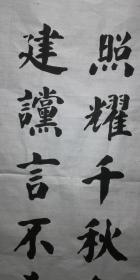 照耀千秋
建讜言不